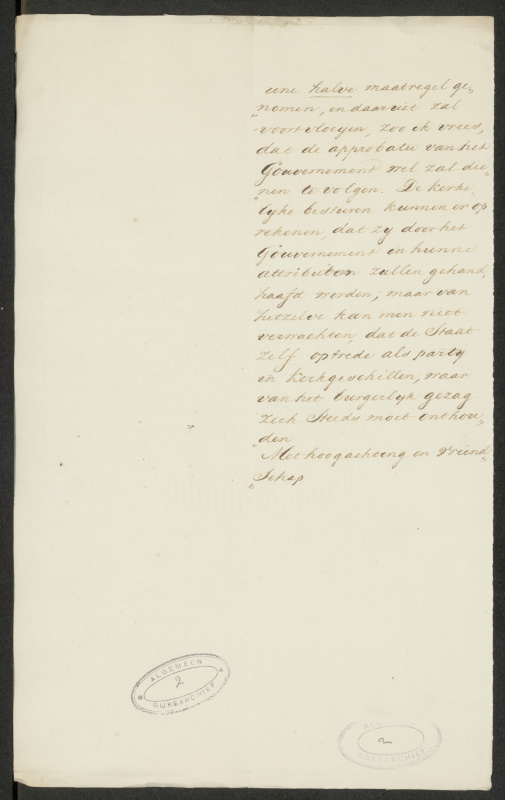 eene halve maatregel ge„
„nomen, en daaruit zal
voortvloeijen, zoo ik vrees,
dat de approbatie van het
Gouvernement wel zal die„
„nen te volgen. De kerke„
lyke besturen kunnen er op
rekenen, dat zy door het
Gouvernement in hunne
attributen zullen gehand„
haafd worden; maar van
hetzelve kan men niet
verwachten, dat de Staat
zelf optrede als party
in kerkgeschillen, waar
van het burgerlyk gezag
zich steeds moet onthou„
den
Met hoogachting en vriend„
„schap
ALGEMEEN
2
RIJKSARCHIEF
ALGEMEEN
2
RIJKSARCHIEF